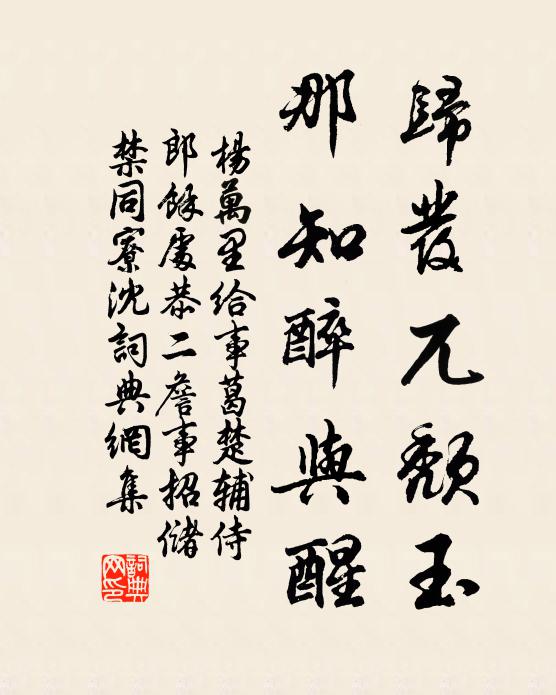 歸發兀頽玉
那知醉與醒
楊萬里給事葛楚輔侍
郎餘處恭二詹事招儲
禁同寮沈詞典網集
詞典网印